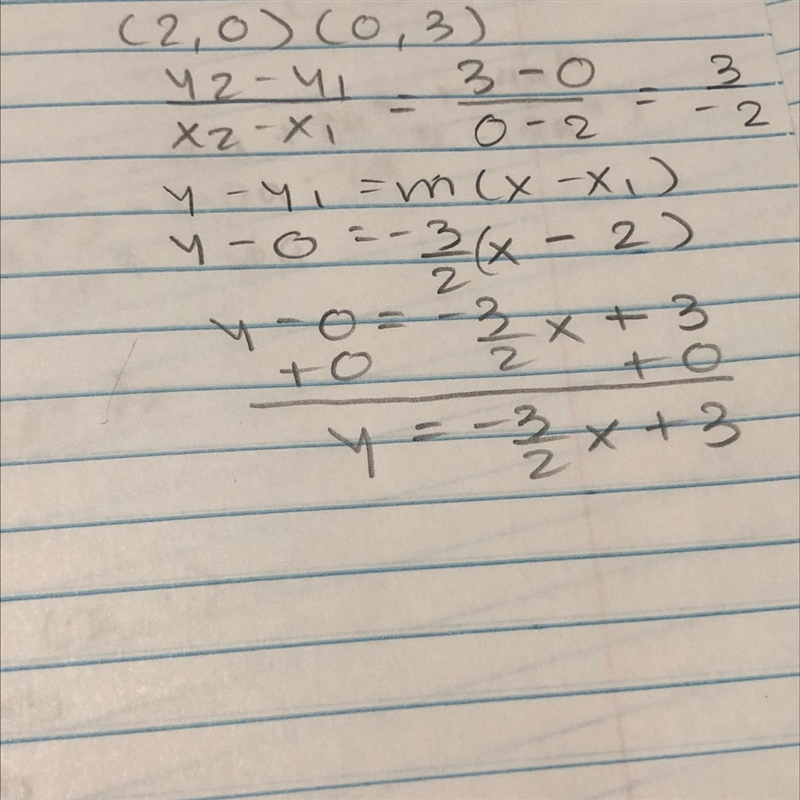 (2,0) (0,3)
y2 - y1 / x2 - x1 = 3 - 0 / 0 - 2 = 3 / -2
y - y1 = m(x - x1)
y - 0 = -3/2(x - 2)
y - 0 = -3/2x + 3
+0 +0
y = -3/2x + 3